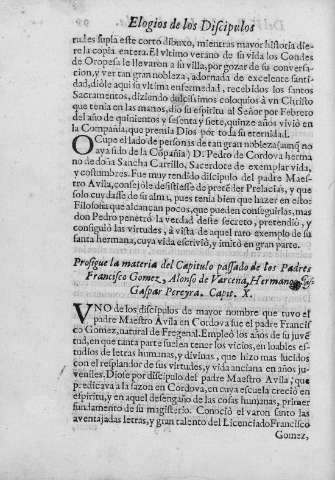 Elogios de los Discipulos
tudes supla este corto dibuxo, mientras mayor historia die
re la copia entera. El vltimo verano de su vida los Condes
de Oropesa le lleuaron a su villa, por gozar de su conuersa-
cion, y ver tan gran nobleza, adornada de excelente santi-
dad, diòle aqui su vltima enfermedad, recebidos los santos
Sacramentos, diziendo dulcissimos coloquios à vn Christo
que tenia en las manos, dio su espiritu al Señor por Febrero
del año de quinientos y sesenta y siete, quinze años viviò en
la Compañia, que premia Dios por toda su eternidad.
OCupo el lado de persona de tan gran nobleza (aunq̃ no
aya sido de la Cõpañia) D. Pedro de Cordova herma
no de doña Sancha Carrillo, Sacerdote de exemplar vida,
y costumbres. Fue muy rendido discipulo del padre Maes-
tro Avila, consejòle desistiesse de pretẽder Prelacias, y que
solo cuydasse de su alma, pues tenia bien que hazer en esto:
Filosofia que alcançan pocos, que pueden conseguirlas, mas
don Pedro penetrò la verdad deste secreto, pretendiò, y
consiguiò las virtudes, à vista de aquel raro exemplo de su
santa hermana, cuya vida escriviò, y imitò en gran parte.
Prosigue la materia del Capitulo passado de los Padres
Francisco Gomez, Alonso de Varcena, Hermano
Gaspar Pereyra. Capit. X.
VNO de los discipulos de mayor nombre que tuvo el
padre Maestro Avila en Cordova fue el padre Francis
co Gomez, natural de Fregenal. Empleò los años de su juvẽ
tud, en que tanta parte suelen tener los vicios, en loables es
tudios de letras humanas, y divinas, que hizo mas lucidos
con el resplandor de sus virtudes, y vida anciana en años ju-
veniles. Diose por discipulo del padre Maestro Avila, que
predicava a la sazon en Cordova, en cuya escuela creciò en
espiritu, y en aquel desengaño de las cosas humanas, primer
fundamento de su magisterio. Conociò el varon santo las
aventajadas letras, y gran talento del Licenciado Francisco
Gomez,